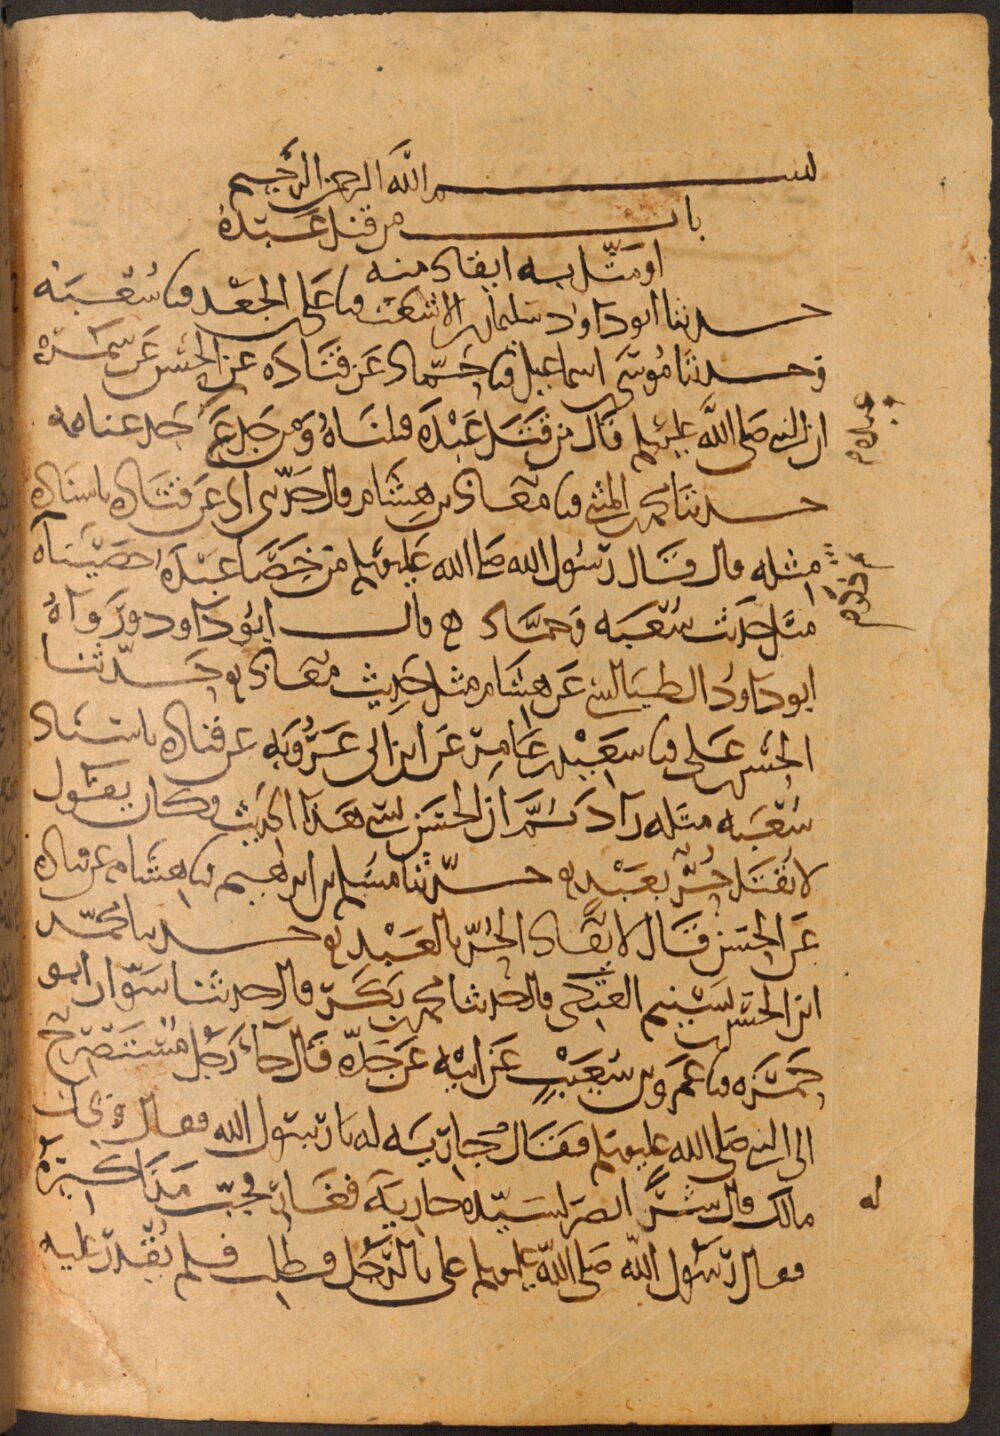 بسم الله الرحمن الرحيم
باب من قتل عبده
او مثل به ايقاد منه
حدثنا ابو داود سليمان بن الاشعث نا علي بن الجعد نا شعبه
وحدثنا موسى بن اسماعيل نا حماد عن قتاده عن الحسن عن سمره
ان النبي صلى الله عليه وسلم قال من قتل عبده قتلناه ومن جدع عبده جدعناه
حدثنا محمد بن المثنى نا معاذ بن هشام قال حدثني ابي عن قتاده باسناده
مثله قال قال رسول الله صلى الله عليه وسلم من خصا عبده اخصيناه
مثل حديث شعبه وحماد ه قال ابو داود ورواه
ابو داود الطيالسي عن هشام مثل حديث معاذ ه حدثنا
الحسن بن علي نا سعيد بن عامر عن ابن ابي عروبه عن قتاده باسناد
شعبه مثله زاد ثم ان الحسن نسي هذا الحديث فكان يقول
لا يقتل حر بعبد ه حدثنا مسلم بن ابرهيم نا هشام عن قتاده
عن الحسن قال لا يقاد الحر بالعبد ه حدثنا محمد
ابن الحسن بن تسنيم العتكي قال حدثنا محمد بن بكر قال حدثنا سوار ابو
حمزه نا عمرو بن شعيب عن ابيه عن جده قال جاء رجل مستصرخ
الى النبي صلى الله عليه وسلم فقال جارية له يا رسول الله فقال ويحك
مالك قال شر ابصر لسيده جارية فغار فجب مذاكيره
فقال رسول الله صلى الله عليه وسلم علي بالرجل فطلب فلم يقدر عليه
له